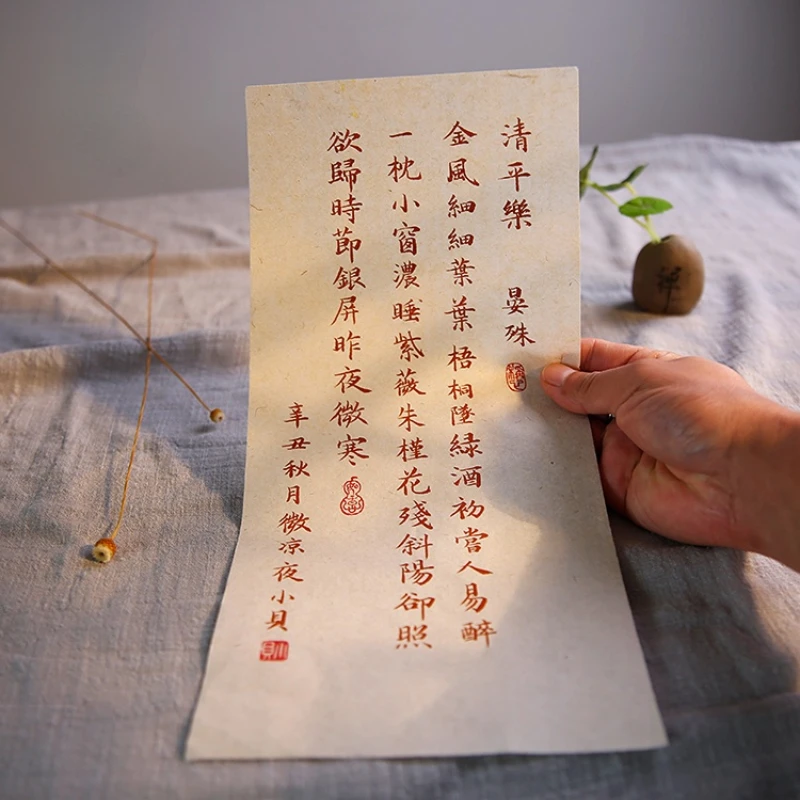 清平樂 晏殊
金風細細葉葉梧桐墜緑酒初嘗人易醉
一枕小窗濃睡紫薇朱槿花殘斜陽卻照
欲歸時節銀屏昨夜微寒
辛丑秋月微凉夜小貝
小貝
禅